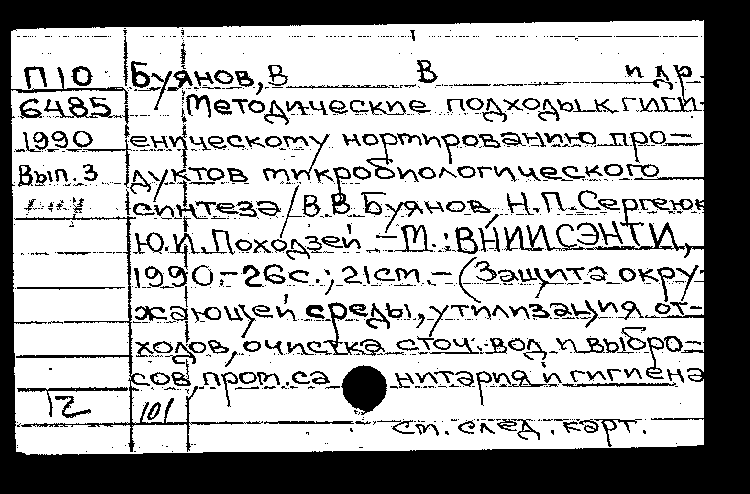 П10 Буянов, В В и др.
6485 Методические подходы к гиги-
1990 еническому нормированию про-
Вып. 3 дуктов микробиологического
синтеза / В.В. Буянов, Н.П. Сергеюк,
Ю.И. Походзей. – М.: ВНИИСЭНТИ,
1990. – 26 с.; 21 см. – (Защита окру-
жающей среды, утилизация от-
ходов, очистка сточ. вод и выбро-
сов, пром. санитария и гигиена
12 101 см. след. карт.